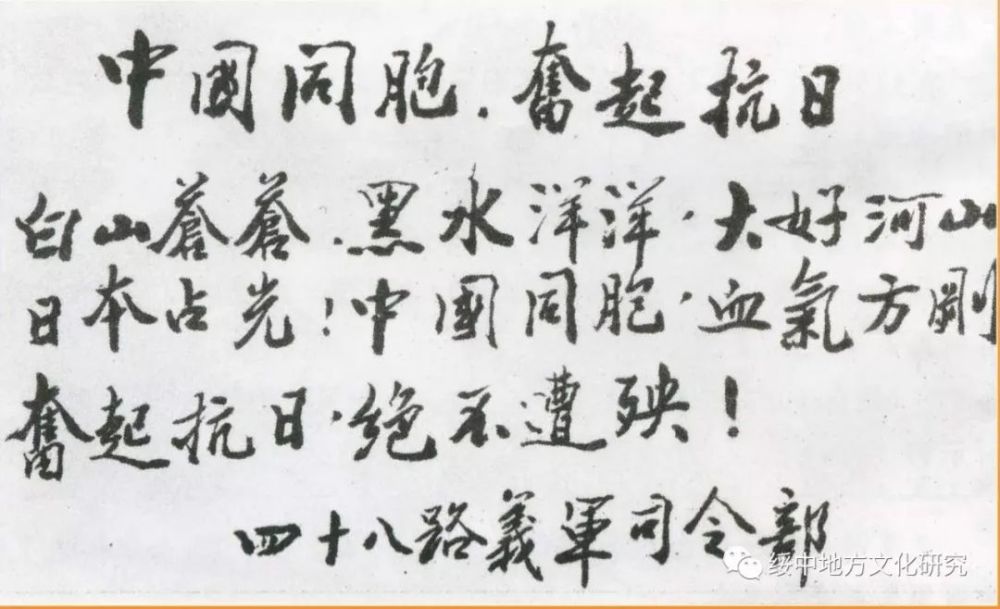 中國同胞.奮起抗日
白山蒼蒼.黑水洋洋.大好河山
日本占光!中國同胞.血氣方剛
奮起抗日.絕不遭殃!
四十八路義軍司令部
绥中地方文化研究